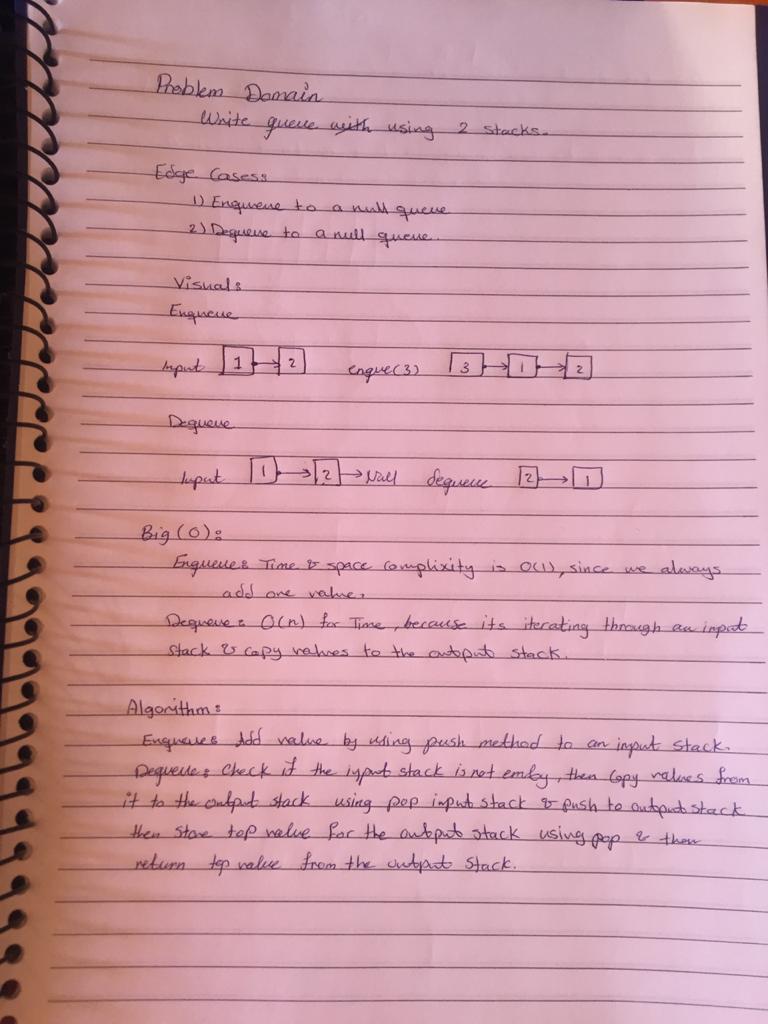 Problem Domain
Write queue with using 2 stacks.
Edge Cases:
1) Enqueue to a null queue
2) Dequeue to a null queue.
Visual:
Enqueue
Input 1 → 2 enque(3) 3 → 1 → 2
Dequeue
Input 1 → 2 → Null dequeue 2 → 1
Big (O):
Enqueue: Time & space complixity is O(1), since we always
add one value.
Dequeue: O(n) for Time, because its iterating through an input
stack & copy values to the output stack.
Algorithm:
Enqueue: Add value by using push method to an input stack.
Dequeue: check if the input stack is not emby, then copy values from
it to the output stack using pop input stack & push to output stack
then store top value for the output stack using pop & then
return top value from the output stack.